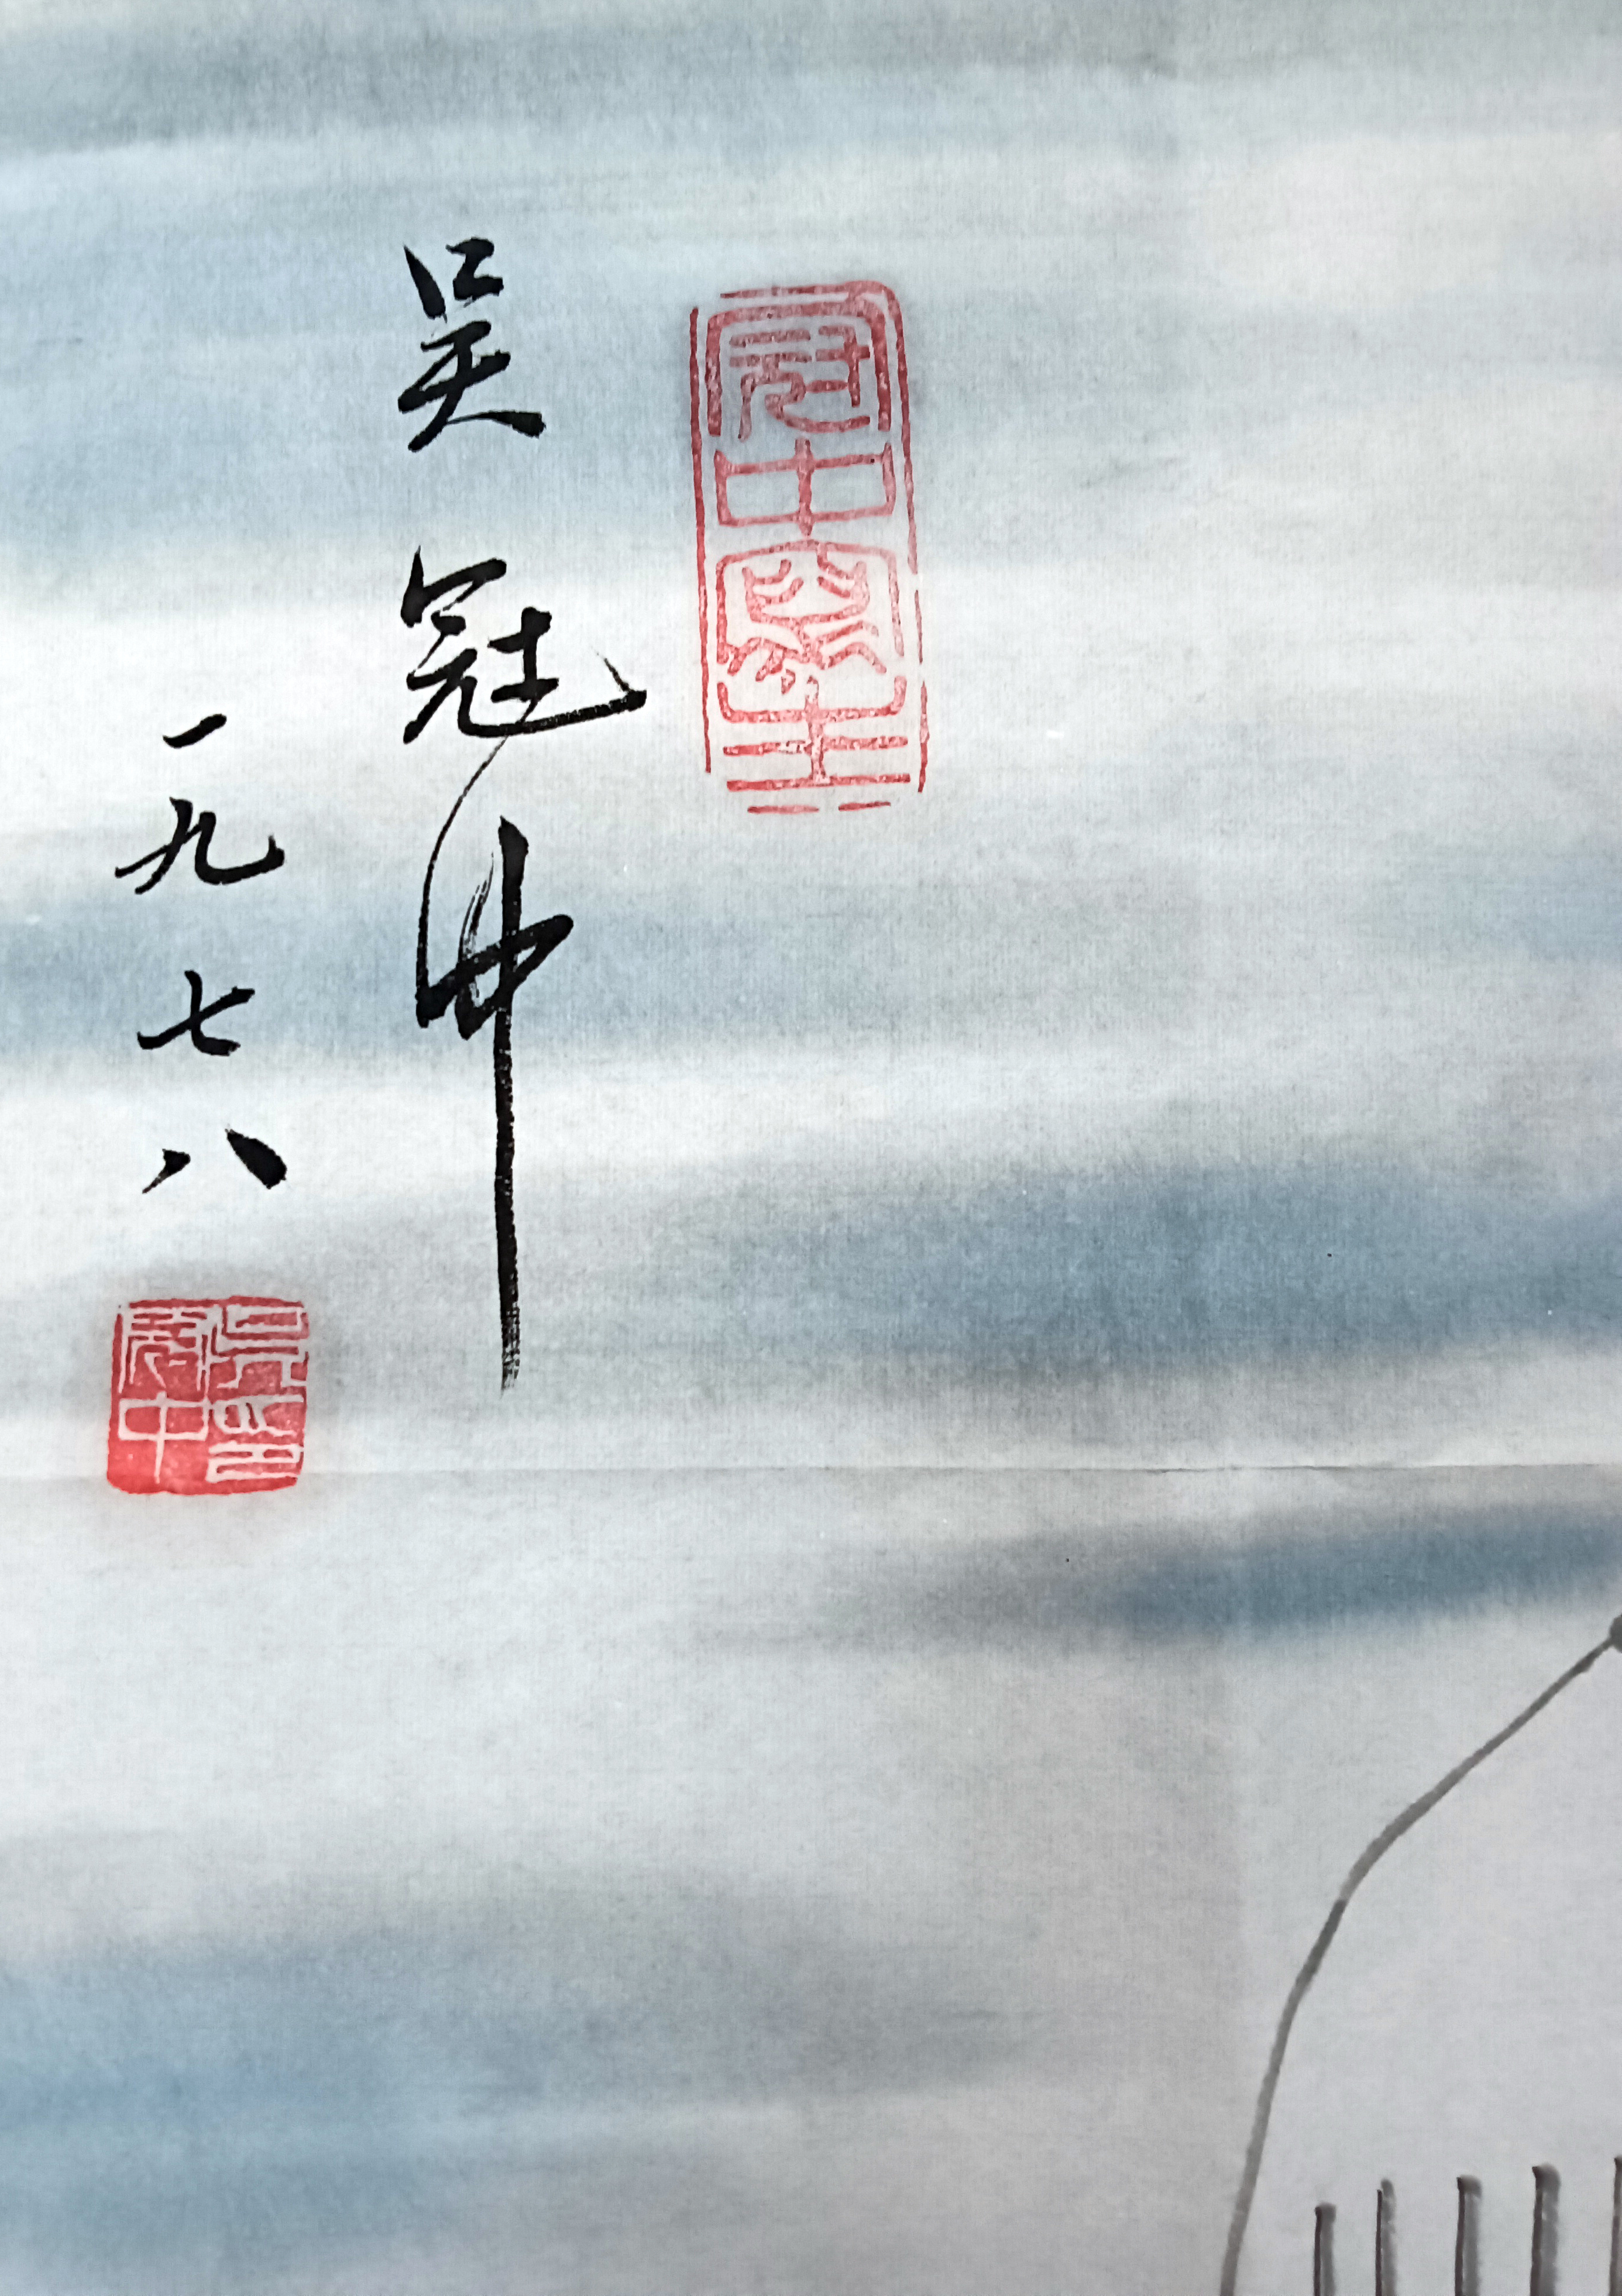 冠中寫生
吴冠中
一九七八
吳印
冠中